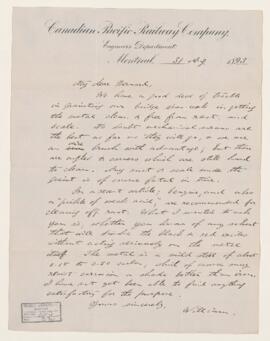 Canadian Pacific Railway Company.
Engineers Department
Montreal 31 Aug 1893
My dear
We have a good deal of trouble
in painting our bridge in getting
the metal clean, & free from rust, and
scale. The best mechanical means are
the best as far as they go, & we use
an brush with advantage; but there
are angles & corners which are still hard
to clean. Any rust & scale under the
paint is of course fatal in time.
In a recent article, benzine, and also
a "pickle of weak acid", are recommended for
cleaning off rust. What I wanted to ask
you is, whether you know of any solvent
that will the black & red oxides
without acting injuriously on the metal
itself. The metal is a mild steel of about
which of course may
resist corrosion a shade better than iron.
I have not yet been able to find anything
satisfactory for the purpose.
Yours sincerely,